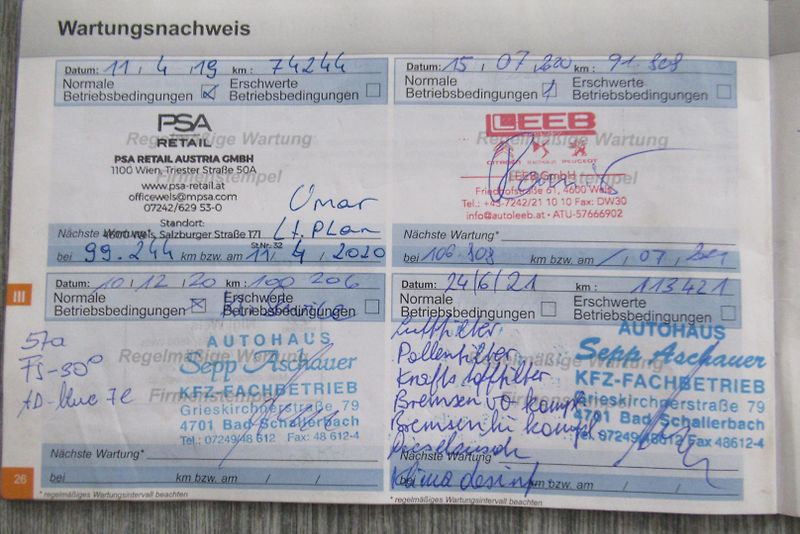 Wartungsnachweis
Datum: 11 / 4 / 19 km : 74244
Normale Betriebsbedingungen
Erschwerte Betriebsbedingungen
Regelmäßige Wartung
PSA
RETAIL
PSA RETAIL AUSTRIA GMBH
1100 Wien, Triester Straße 50A
Firmenstempel
www.psa-retail.at
officewels@mpsa.com
07242/629 53-0
Omar
Lt. Plan
Standort:
4600 Wels, Salzburger Straße 171
Nächste Wartung*
St.Nr.: 32
bei 99.244 km bzw. am 11 / 4 / 2020
Datum: 15 / 07 / 2020 km : 91.808
Normale Betriebsbedingungen
Erschwerte Betriebsbedingungen
Regelmäßige Wartung
LEEB
CITROËN PEUGEOT
LEEB GmbH
Firmenstempel
Friedhofstraße 61, 4600 Wels
Tel.: +43-7242/21 10 10 Fax: DW30
info@autoleeb.at • ATU-57666902
Nächste Wartung*
bei 106.808 km bzw. am / 07 / 2021
III
Datum: 10 / 12 / 20 km : 100 206
Normale Betriebsbedingungen
Erschwerte Betriebsbedingungen
57a
FS-30°
AD-blue 7l
Regelmäßige Wartung
Firmenstempel
AUTOHAUS
Sepp Aschauer
KFZ-FACHBETRIEB
Grieskirchnerstraße 79
4701 Bad Schallerbach
Tel.: 07249/48 612 Fax: 48 612-4
Nächste Wartung*
bei / km bzw. am / /
Datum: 24/6/21 km : 113421
Normale Betriebsbedingungen
Erschwerte Betriebsbedingungen
Luftfilter
Pollenfilter
Kraftstofffilter
Bremsen vo kompl.
Bremsen hi kompl
Klima desinf
Regelmäßige Wartung
AUTOHAUS
Sepp Aschauer
KFZ-FACHBETRIEB
Grieskirchnerstraße 79
4701 Bad Schallerbach
Tel.: 07249/48612 Fax 48612-4
Nächste Wartung*
bei km bzw. am / /
26
* regelmäßiges Wartungsintervall beachten
* regelmäßiges Wartungsintervall beachten